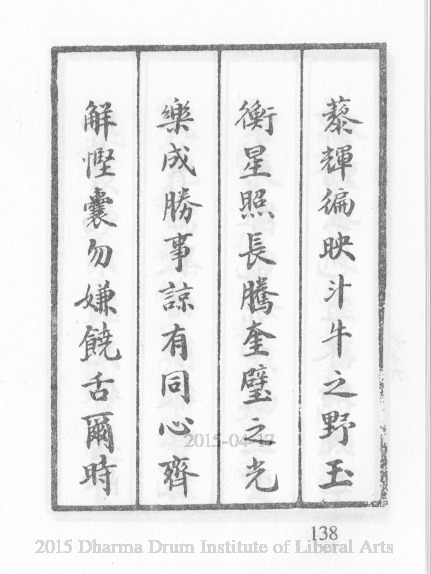 藜輝徧映斗牛之野玉
衡星照長騰奎璧之光
樂成勝事諒有同心齊
解慳囊勿嫌饒舌爾時
138
2015-04-17
2015 Dharma Drum Institute of Liberal Arts